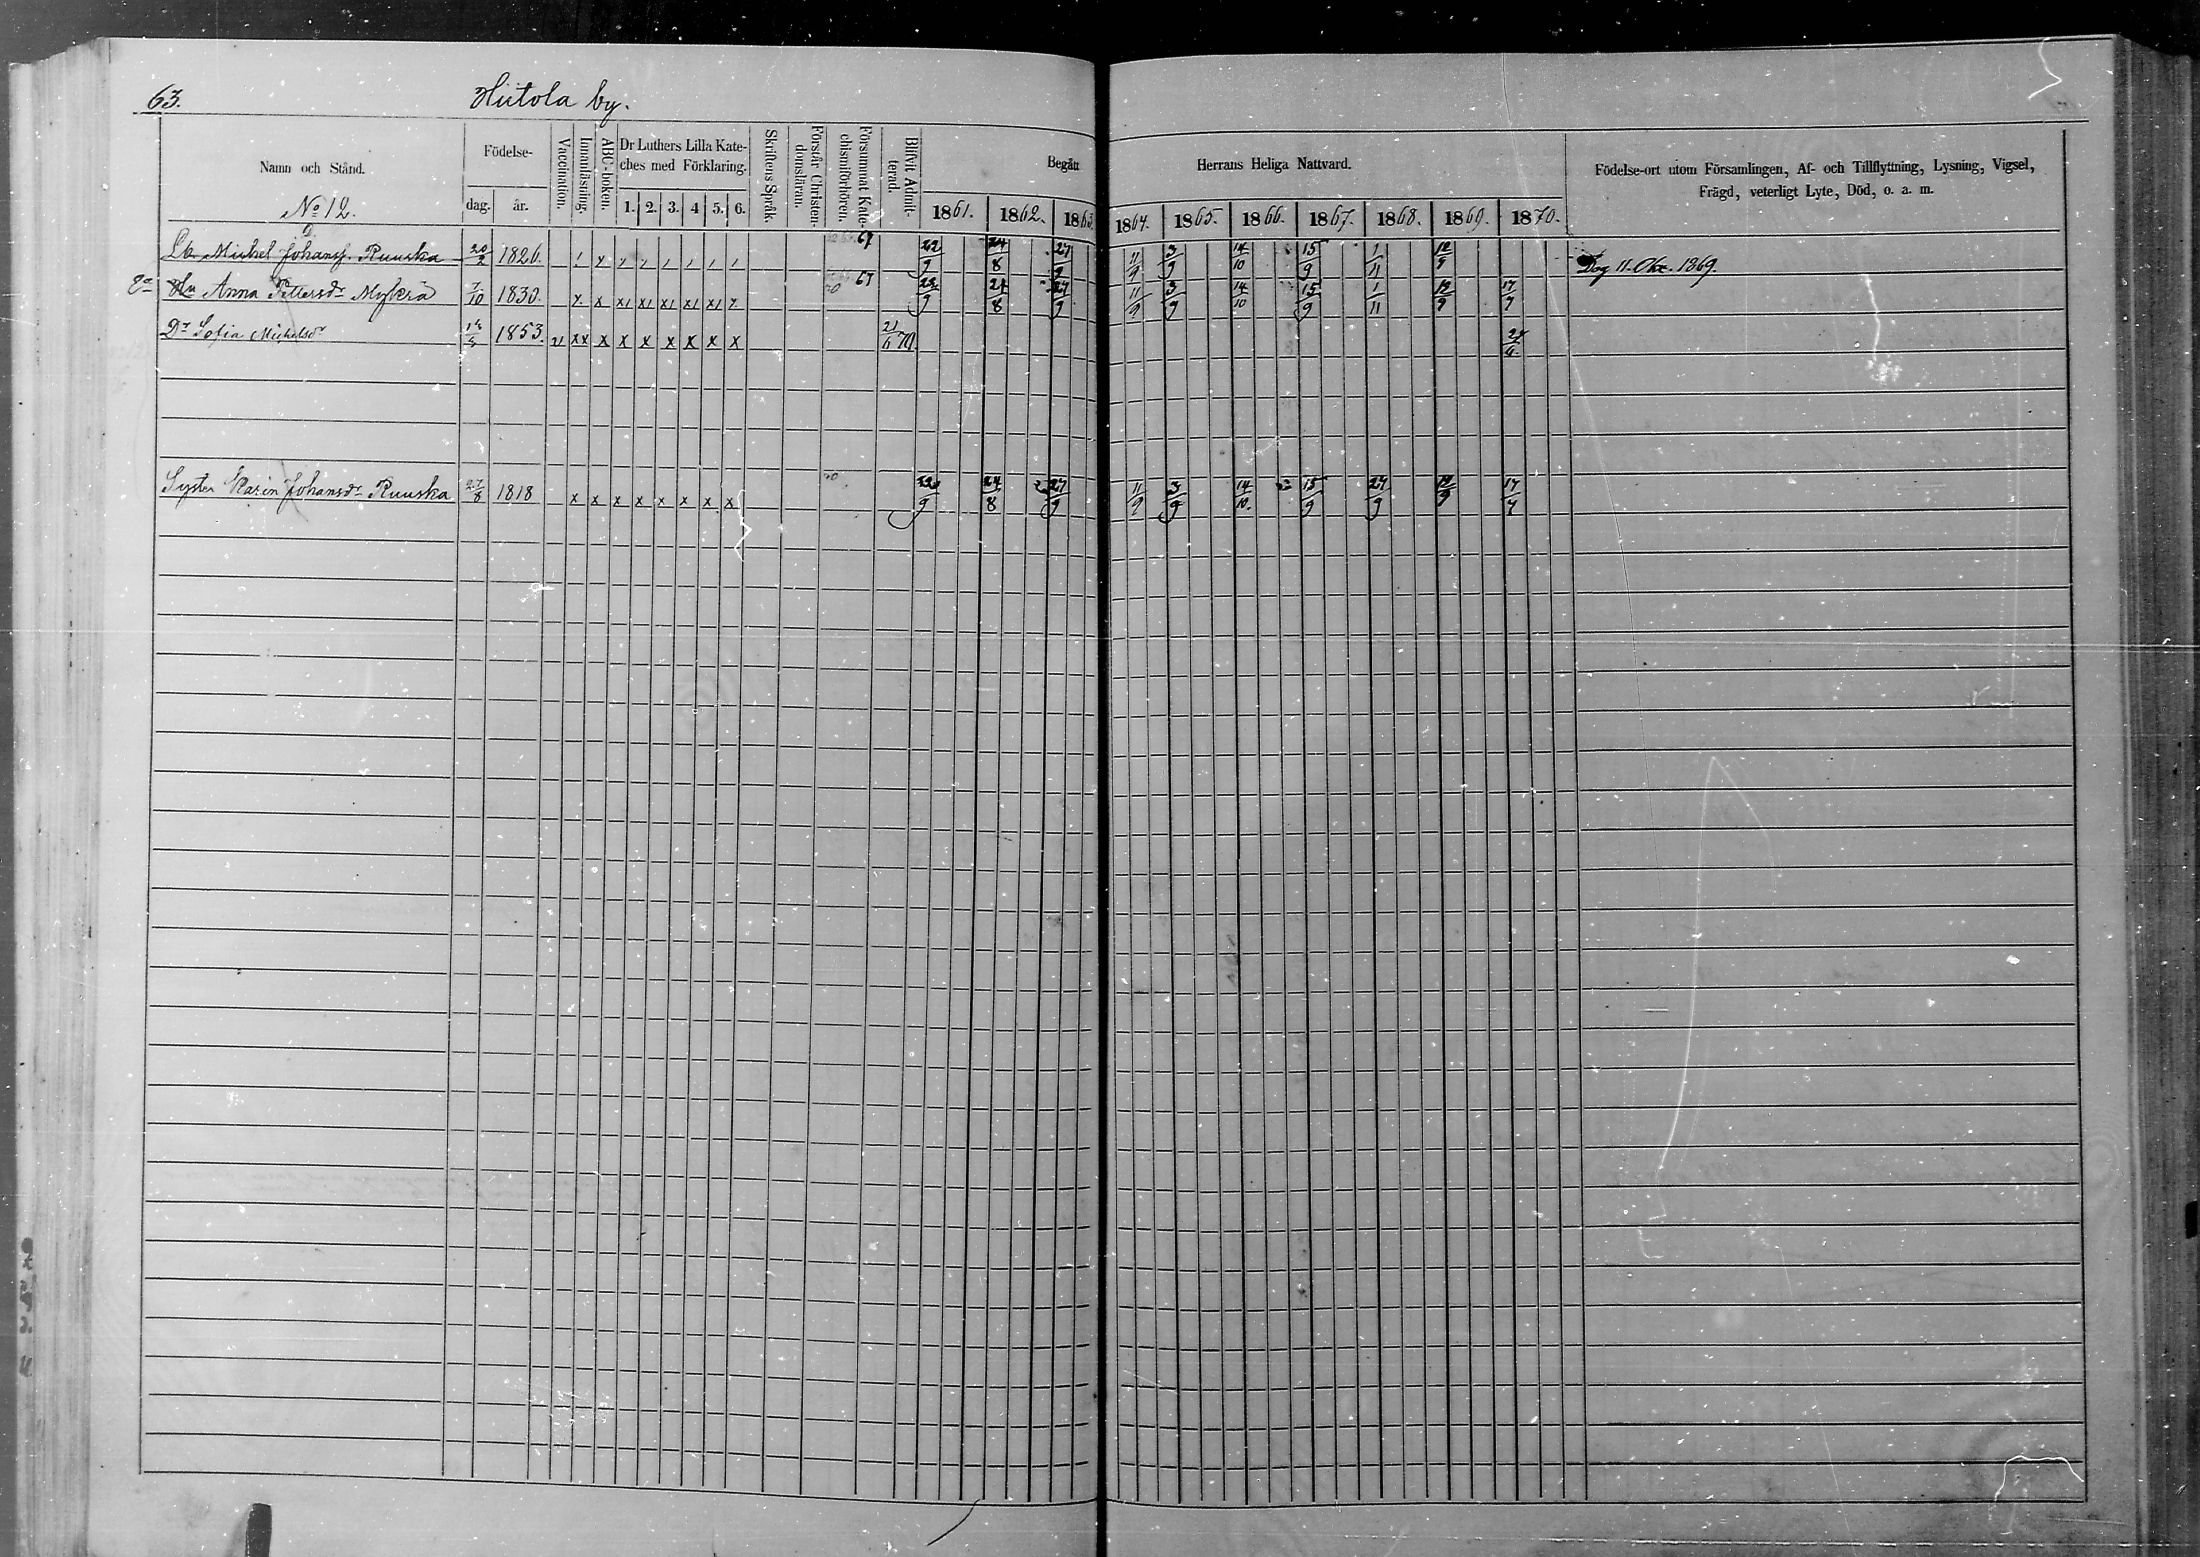 63.
Hiitola by.
Namn och Stånd.
No 12.
Födelse-
dag. år.
Vaccination.
Innanläsning.
ABC-boken.
Dr Luthers Lilla Kate-
ches med Förklaring.
1. 2. 3. 4 5. 6.
Skriftens Språk.
Förstår Christen-
domsläran.
Försummat Kate-
chismiförhören.
Blifvit Admit-
terad.
Begått Herrans Heliga Nattvard.
1861. 1862. 1863. 1864. 1865. 1866. 1867. 1868. 1869. 1870.
Födelse-ort utom Församlingen, Af- och Tillflyttning, Lysning, Vigsel,
Frägd, veterligt Lyte, Död, o. a. m.
Michel Johanss. Ruuska 20/2 1826. 67 22/9 24/8 27/9 11/9 3/9 14/10 15/9 1/11 Dog 11. Okt. 1869.
Anna Pettersdr Mykrä 7/10 1830. x x x1 x1 x1 x1 x1 67 22/9 24/8 27/9 11/9 3/9 14/10 15/9 1/11 17/7
Dr Sofia Michelsdr 1853. xx x x x x x x x 21/6 70
Syster Karin Johansdr Ruuska 27/8 1818 x x x x x x x x 22/9 24/8 27/9 11/9 3/9 14/10. 15/9 27/9 17/7